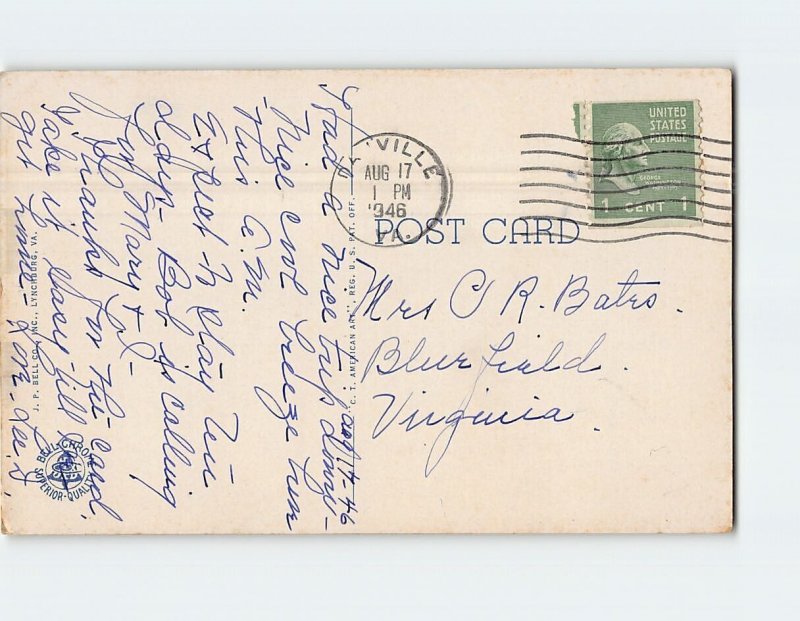 Aug 17-46
Had a nice trip down -
Nice cool breeze here
this A.M.
Expect to stay ten
days - Bob is calling
for Mary & I -
Thanks for the card,
take it easy - ill
get home - Love.
VILLE
AUG 17
1 PM
1946
VA.
UNITED
STATES
POSTAGE
GEORGE
WASHINGTON
1 CENT 1
POST CARD
Mrs C R. Bates.
Bluefield.
Virginia.
"C. T. AMERICAN ART", REG. U. S. PAT. OFF.
J. P. BELL CO., INC., LYNCHBURG, VA.
BELL-CHROME
SUPERIOR-QUALITY